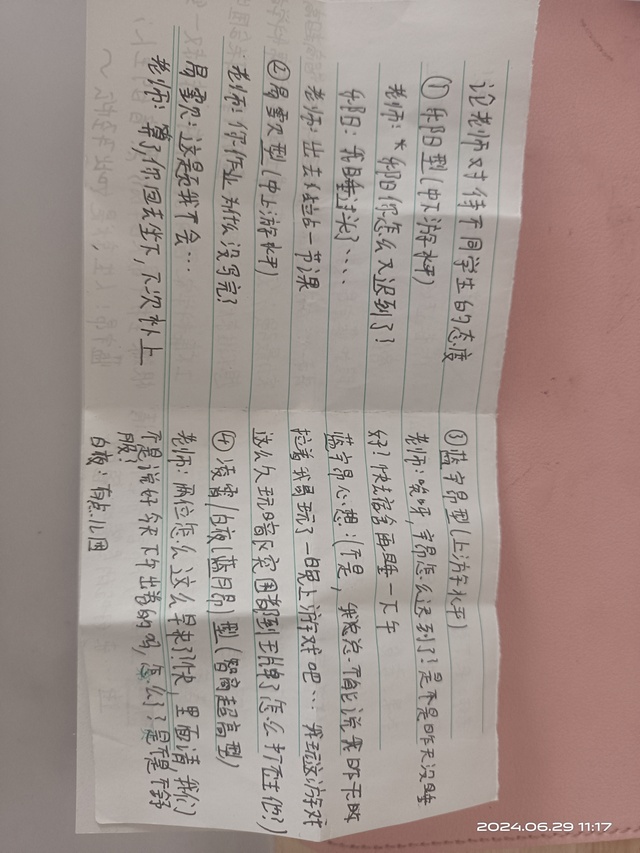 论老师对待不同学生的态度
①朱阳型(中下游水平)
老师:*朱阳你怎么又迟到了?
朱阳:我睡过头了····
老师:出去给站一节课
②易雪型(中上游水平)
老师:你作业为什么没写完?
易雪:这是我不会…
老师:算了,你回去坐下,下次补上
③蓝宇昂型(上游水平)
老师:哎呀,宇昂怎么迟到了?是不是昨天没睡
好?快去宿舍再睡一下午
蓝宇昂心想:(不是,我总不能说我昨天
拉着我玩了一晚上游戏吧…我玩这游戏
这么久玩暗区突围都到王牌了怎么打不住他?)
④凌霄/白夜(蓝月昂)型(智商超高型)
老师:两位怎么这么早来了?快,里面请,我们
不是说好今天下午出卷的吗,怎么了?是不是不舒
服?
白夜:有点儿困
2024.06.29 11:17